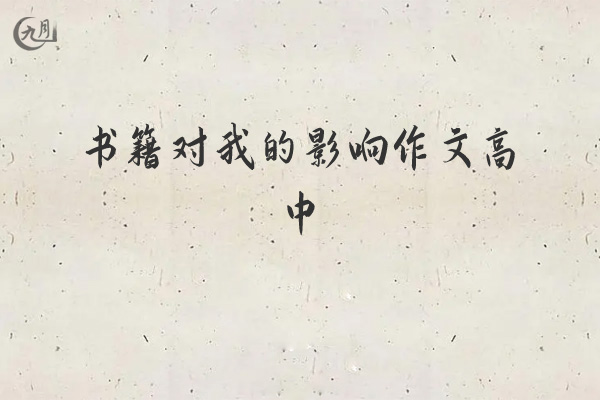 九月
书籍对我的影响作文高
中